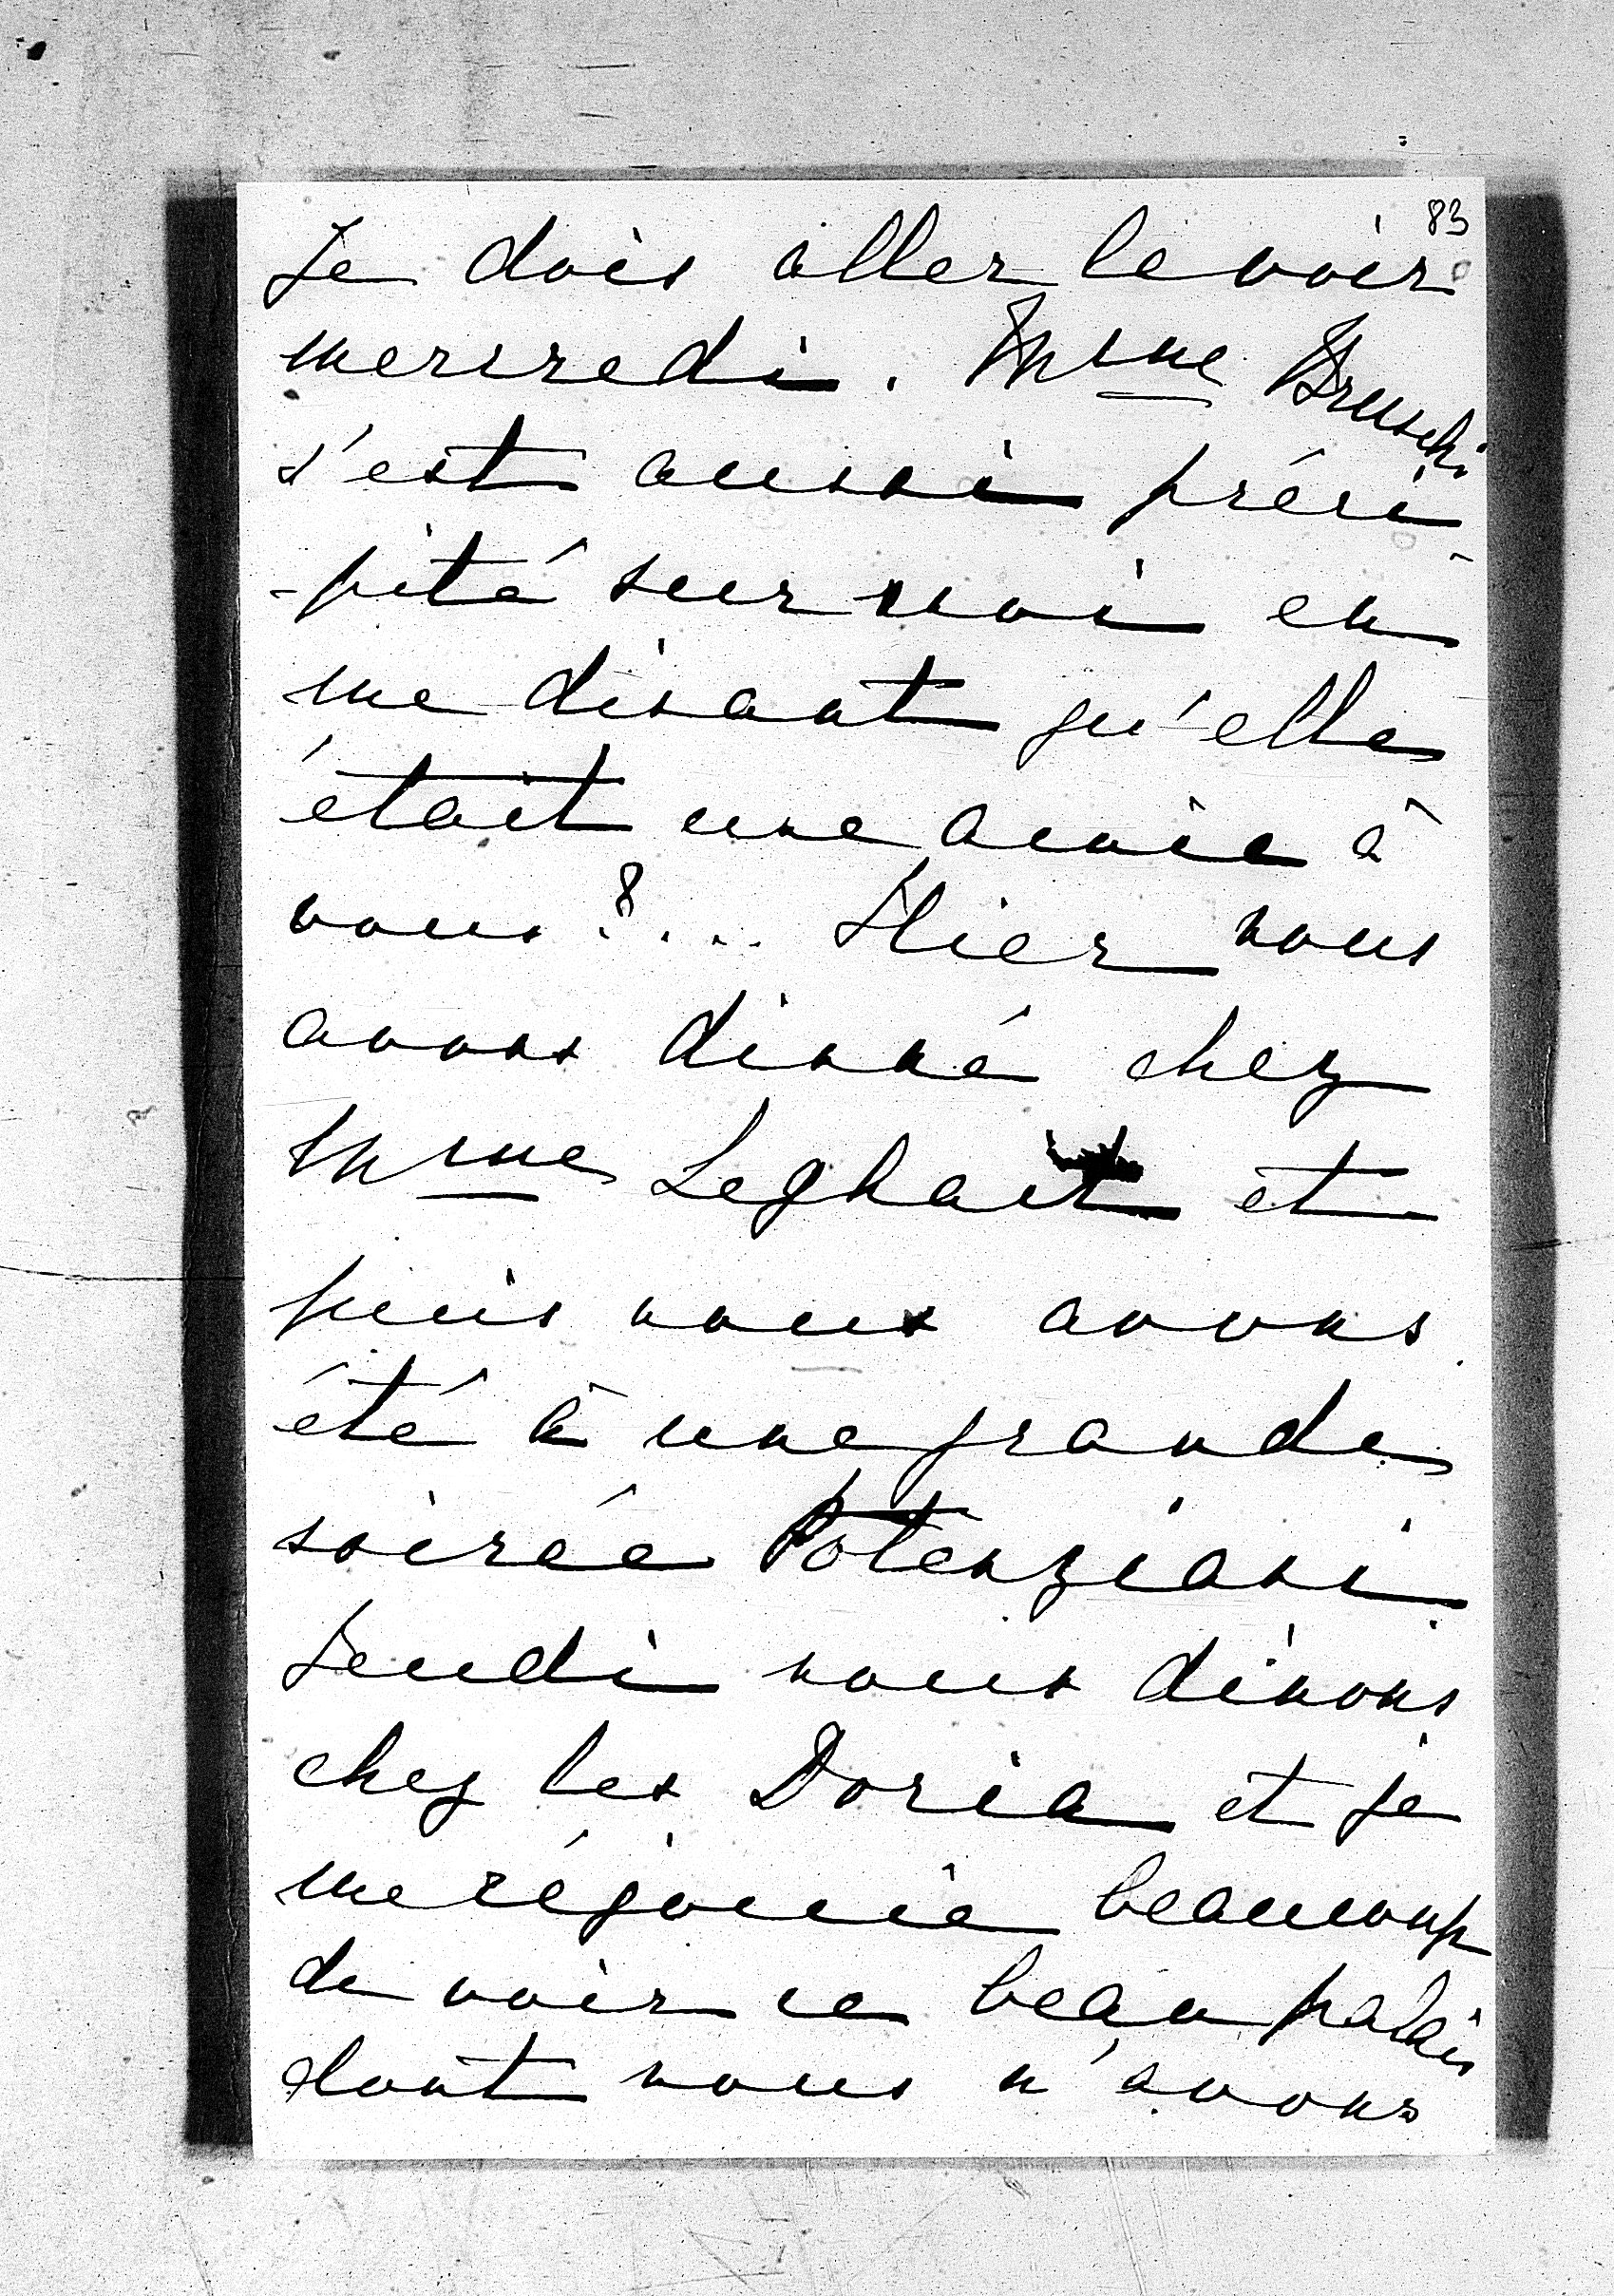 83
Je dois aller le voir
mercredi. Mme Bruschi
s'est aussi préci-
-pité sur moi en
me disant qu'elle
était une amie à
vous ?... Hier nous
avons dinné chez
Mme Leghait et
puis nous avons
été à une grande
soirée Potenziani
Jeudi nous dinons
chez les Doria et je
me réjouie beaucoup
de voir ce beau palais
dont nous n'avons